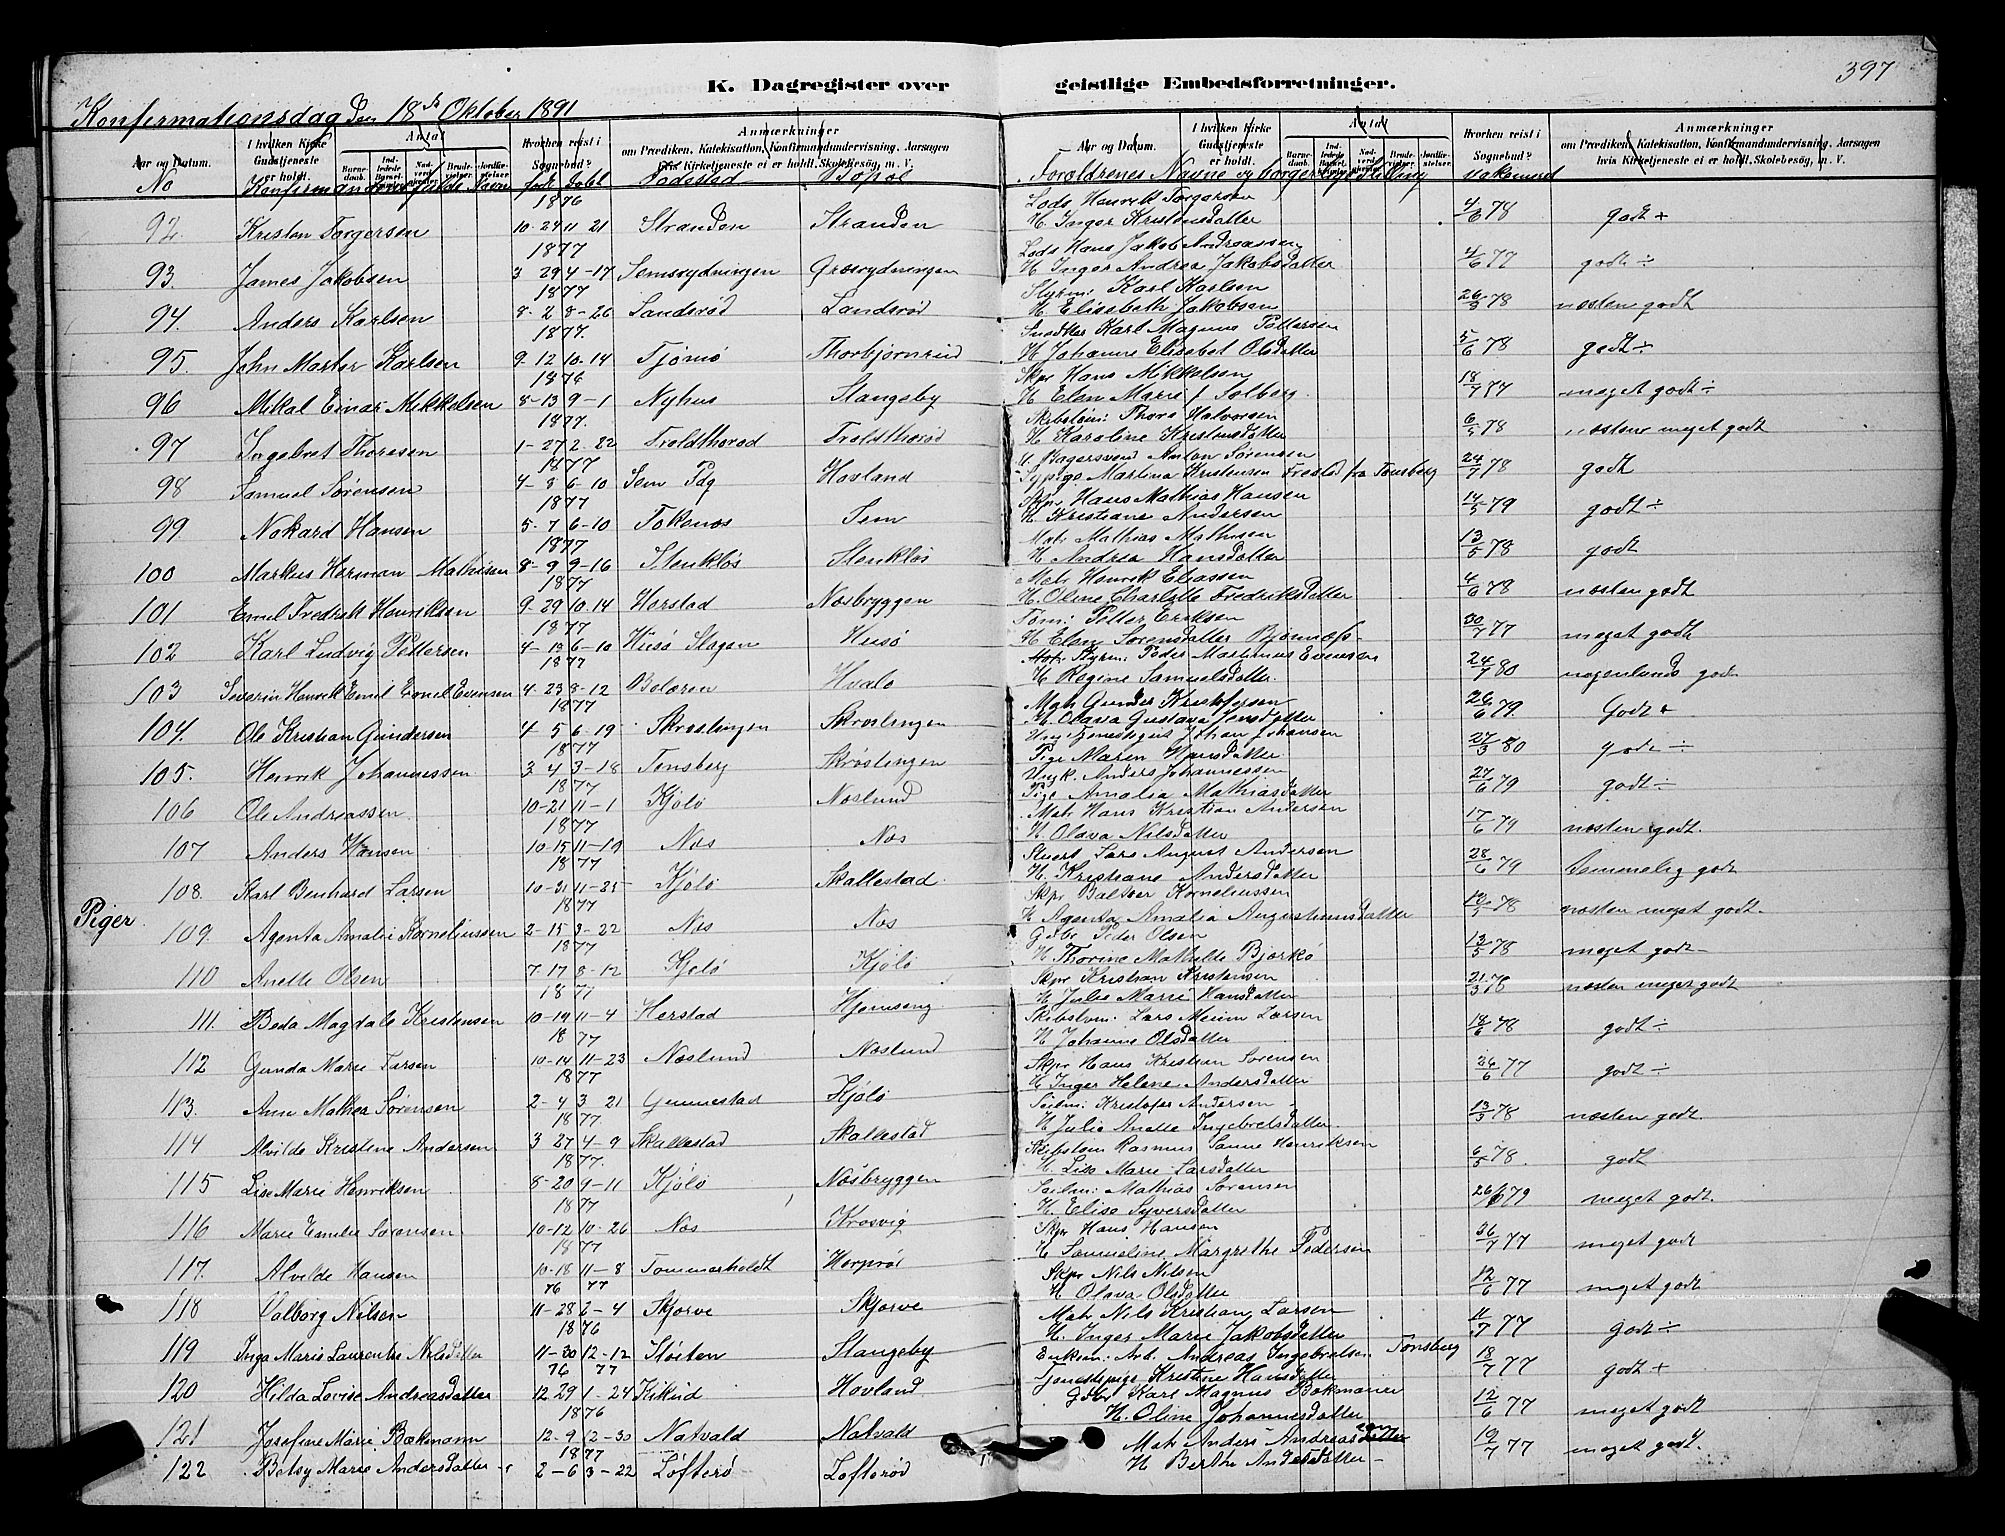 397
K. Dagregister over geistlige Embedsforretninger.
Konfermationsdag den 18de Oktober 1891
Aar og Datum. I hvilken Kirke Gudstjeneste er holdt. Antal Hvorhen reist i Sognebud? Anmærkninger om Prædiken, Katekisation, Konfirmandundervisning, Aarsagen hvis Kirketjeneste ei er holdt, Skolebesøg, m. V.
Aar og Datum. I hvilken Kirke Gudstjeneste er holdt. Antal Hvorhen reist i Sognebud? Anmærkninger om Prædiken, Katekisation, Konfirmandundervisning, Aarsagen hvis Kirketjeneste ei er holdt, Skolebesøg, m. V.
No Konfermandernes fulde Navne født Døbt Fødested Bopæl Forældrenes Navne og borgerlige Stilling vaksineret
1876 Lods Henrik Torgersen
92. Kristen Torgersen 10-24 11 21 Stranden Stranden H. Inger Kristensdatter 4/6 78 godt +
1877 Lods Hans Jakob Andreassen
93. James Jakobsen 3 29 4-17 Semsrydningen Græsrydningen H Inger Andrea Jakobsdatter 4/6 77 godt ÷
1877 Styrm: Karl Karlsen
94. Anders Karlsen 8-2 8-26 Sandsrød Landsrød H Elisebeth Jakobsen 26/8 78 næsten godt
1877. Snedker Karl Magnus Pettersen
95. John Martor Karlsen 9-12 10-14 Tjømø Thorbjørnrud H Johanne Elisebet Olsdatter 5/6 78 godt ÷
1876 Skpr Hans Mikkelsen
96 Mikal Einar Mikkelsen 8-13 9-1 Nyhus Slangsby H Elen Marie f Solberg. 18/7 77 meget godt ÷
1877. Skibstøm: Thore Halvorsen
97 Ingebret Thoresen 1-27 2-22 Troldthorød Troldthorød H Karoline Kristensdatter 6/5 78 næsten meget godt
1877 U. Bagersvend Anton Sørensen
98 Samuel Sørensen 4-8 6-10 Sem Pdg Hovland Typige Martina Kristensen Frestad fra Tønsberg 24/7 78 godt
1877 Skpr Hans Mathias Hansen
99 Nokard Hansen 5-7 6-10 Tokenæs Sem H Kristiane Andersen 14/5 79 godt ÷
1877 Matr Mathias Mathisen
100 Markus Herman Mathisen 8-9 9-16 Stenkløs Stenkløs H Andrea Hansdatter 13/5 78 godt
1877 Matr Henrik Eliassen
101 Emil Fredrik Henriksen 9-29 10-14 Herstad Næsbryggen H. Oline Charlotte Fredriksdatter 4/6 78 næsten godt
1877 Tøm: Petter Eriksen
102 Karl Ludvig Pettersen 4-13 6-10 Husø Slagen Husø H Elen Sørensdatter Bjønnæs- 30/7 77 meget godt
1877 Styrm: Peder Martinius Evensen
103 Severin Henrik Emil Evensen 4-23 8-12 Bolæren Hvalø H Regine Samuelsdatter. 24/7 80 nogenlunde godt
1877 Matr Gunder Kristofersen
104. Ole Kristian Gundersen 4-5 6-19 Skrøslingen Skrøslingen H. Olava Gustava Jensdatter 26/6 79. Godt +
1877 Ung. Johan Johansen
105. Henrik Johannessen 3. 4 3-18 Tønsberg Skrøslingen Pige Maren Hansdatter 27/3 80 godt ÷
1877 Ungk. Anders Johannessen
106 Ole Andreassen 10-21 11-1 Kjølø Næslund Pige Amalia Mathiasdatter 27/6 79 godt ÷
1877 Matr Hans Kristian Andersen
107 Anders Hansen 10-15 11-19 Næs Næs H Olava Nilsdatter 17/6 79 næsten godt.
1877 Stuert Lars August Andersen
108. Karl Benhard Larsen 10-21 11-25 Kjølø Skallestad H. Kristiane Andersdatter 28/6 79 temmelig godt
1877 Skpr Baltser Korneliussen
Piger
109. Agenta Amalie Korneliussen 2-15 3-22 Næs Næs H Agenta Amalia Augustinusdatter 12/5 78 næsten meget godt.
1877 Gdbr Peder Olsen
110 Anette Olsen 7-17 8-12 Kjølø Kjølø H Thorine Mathilde Bjerkø 13/5 78 meget godt
1877 Skpr Kristian Kristensen
111. Beda Magdale Kristensen 10-19 11-4 Herstad Hjemseng H Julie Marie Hansdatter 21/3 78 næsten meget godt
1877 Skibstøm: Lars Larsen
112 Gunda Marie Larsen 10-14 11-23 Næslund Næslund H Johanne Olsdatter 18/6 78 godt ÷
1877 Skpr Hans Kristian Sørensen
113. Anne Mathea Sørensen 2-4 3 21 Gunnestad Kjølø H Inger Helene Andersdatter 26/6 77 godt ÷
1877 Seilm: Kristofer Andersen
114 Alvilde Kristine Andersen 3 27 4-9 Skallestad Skallestad H Julie Anette Ingebretsdatter. 13/3 78 næsten godt
1877. Skibstøm Rasmus Sanne Henriksen
115 Lise Marie Henriksen 8-20 9-11 Kjølø Næsbryggen H. Lisa Marie Larsdatter 6/5 78. godt
1877 Seilm: Mathias Sørensen
116 Marie Emilie Sørensen. 10-12 10-26 Næs Krosvig H. Elise Syversdatter 26/6 79 meget godt.
1877 Skpr Hans Hansen
117. Alvilde Hansen 10-18 11-8 Tømmerholdt Herprøi H Samueline Margrethe Pedersen 26/7 77 meget godt
76 77 Skpr Nils Nilsen
118 Valborg Nilsen 11-28 2-4 Skjerve Skjerve H Olava Olsdatter 12/6 77 meget godt
1876 Matr Nils Kristian Larsen
119 Inga Marie Laurentse Nilsdatter 11-30 12-12 Støiten Slangsby H. Inger Marie Jakobsdatter 11/7 77 godt ÷
76 77 Enkem: Arb. Andreas Ingebretsen Tønsberg
120 Hilda Lovise Andreasdatter 12 29 1-24 Kikud Hovland Tjenestepige Kristine Hansdatter 18/7 77 godt +
1876 Gdbr Karl Magnus Bøkmann
121 Josefine Marie Bækmann 12-9 12-30 Natvald Natvald H. Oline Johannesdatter 12/6 77 meget godt
1877 Matr Anders Andreassen
122 Betsy Marie Andersdatter 2-6 3-22 Løfterø Løfterød H Berthe Andersdatter 19/7 77 meget godt.